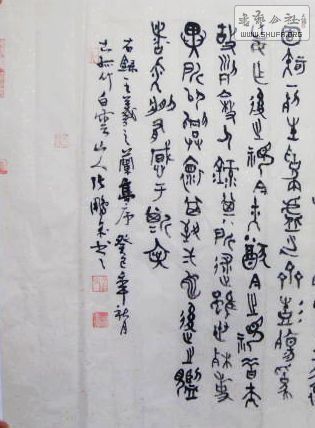 書藝公社
WWW.SHUFA.ORG
固知一死生為虛誕齊彭殤為
妄作後之視今亦猶今之視昔悲夫
故列敘時人錄其所述雖世殊事
異所以興懷其致一也後之覽
者亦將有感于斯文
右錄王羲之蘭亭序 癸巳年秋月
古孤竹白雲山人張鵬書